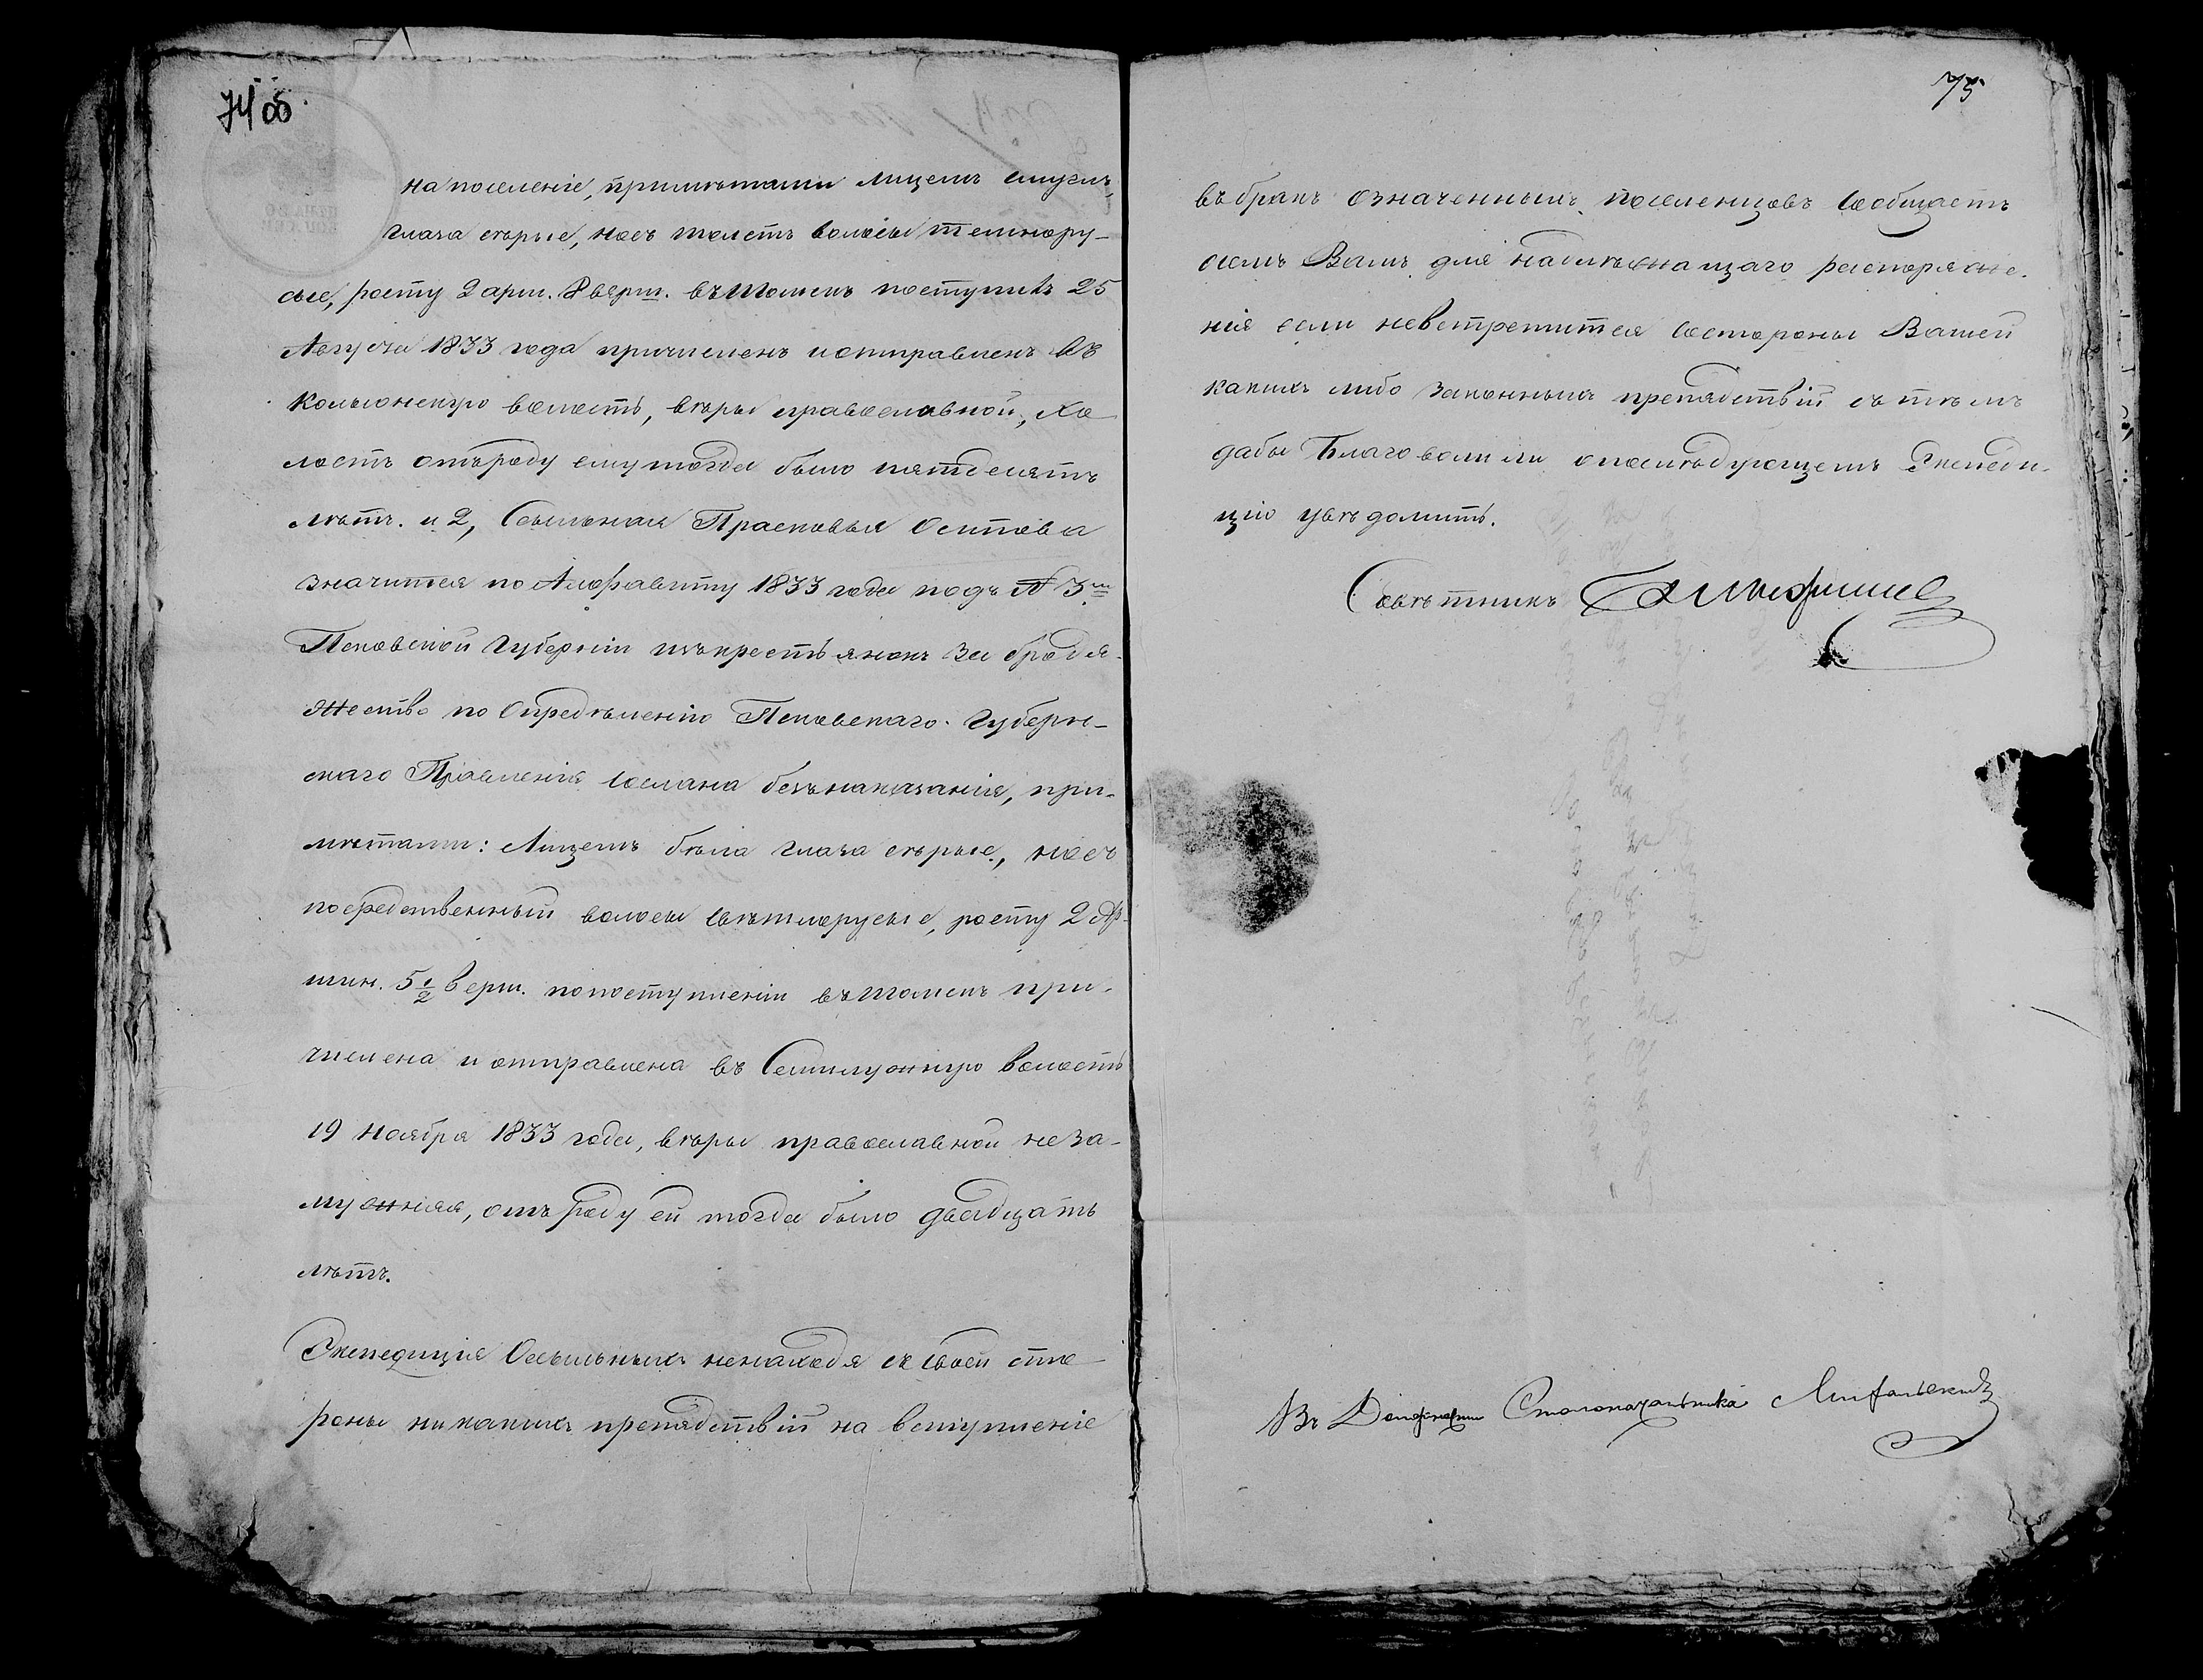 74 об.
на поселеніе, примѣтами лицемъ смуглъ,
глаза сѣрые, носъ толстъ волосы темнору-
сые, росту 2 арш. 8 верш. въ Томскъ поступилъ 25
Августа 1833 года причисленъ и отправленъ въ
волость, вѣры православной, Хо
лостъ отъ роду ему тогда было пятдесятъ
лѣтъ. и 2, Ссыльная Прасковья Осипова
значится по Алфавиту 1833 года подъ № 3м
Псковской Губерніи изъ крестьянокъ за бродя-
жество по Опредѣленію Псковскаго Губерн-
скаго Правленія сослана безънаказанія, при-
мѣтами: Лицемъ бѣла глаза сѣрые, носъ
посредственный волосы свѣтлорусые, росту 2 Ар-
шин. 5 1/2 верш. по поступленіи въ Томскъ при-
числена и отправлена въ Семилужную волость
19 Ноября 1833 года, вѣры православной не за-
мужняя, отъ роду ей тогда было двадцать
лѣтъ.
Экспедиція Ссыльныхъ ненаходя съ своей сто-
роны никакихъ препядствій на вступленіе
75
въ бракъ означеннымъ поселенцовъ сообщаетъ
о семъ Вамъ для надлѣжащаго распоряже-
нія если невстретится состороны Вашей
какихъ либо законныхъ препядствій съ тѣмъ
дабы Благоволили опослѣдующемъ Экспеди-
цію увѣдомить.
Совѣтникъ
Въ Должности Столоначальника